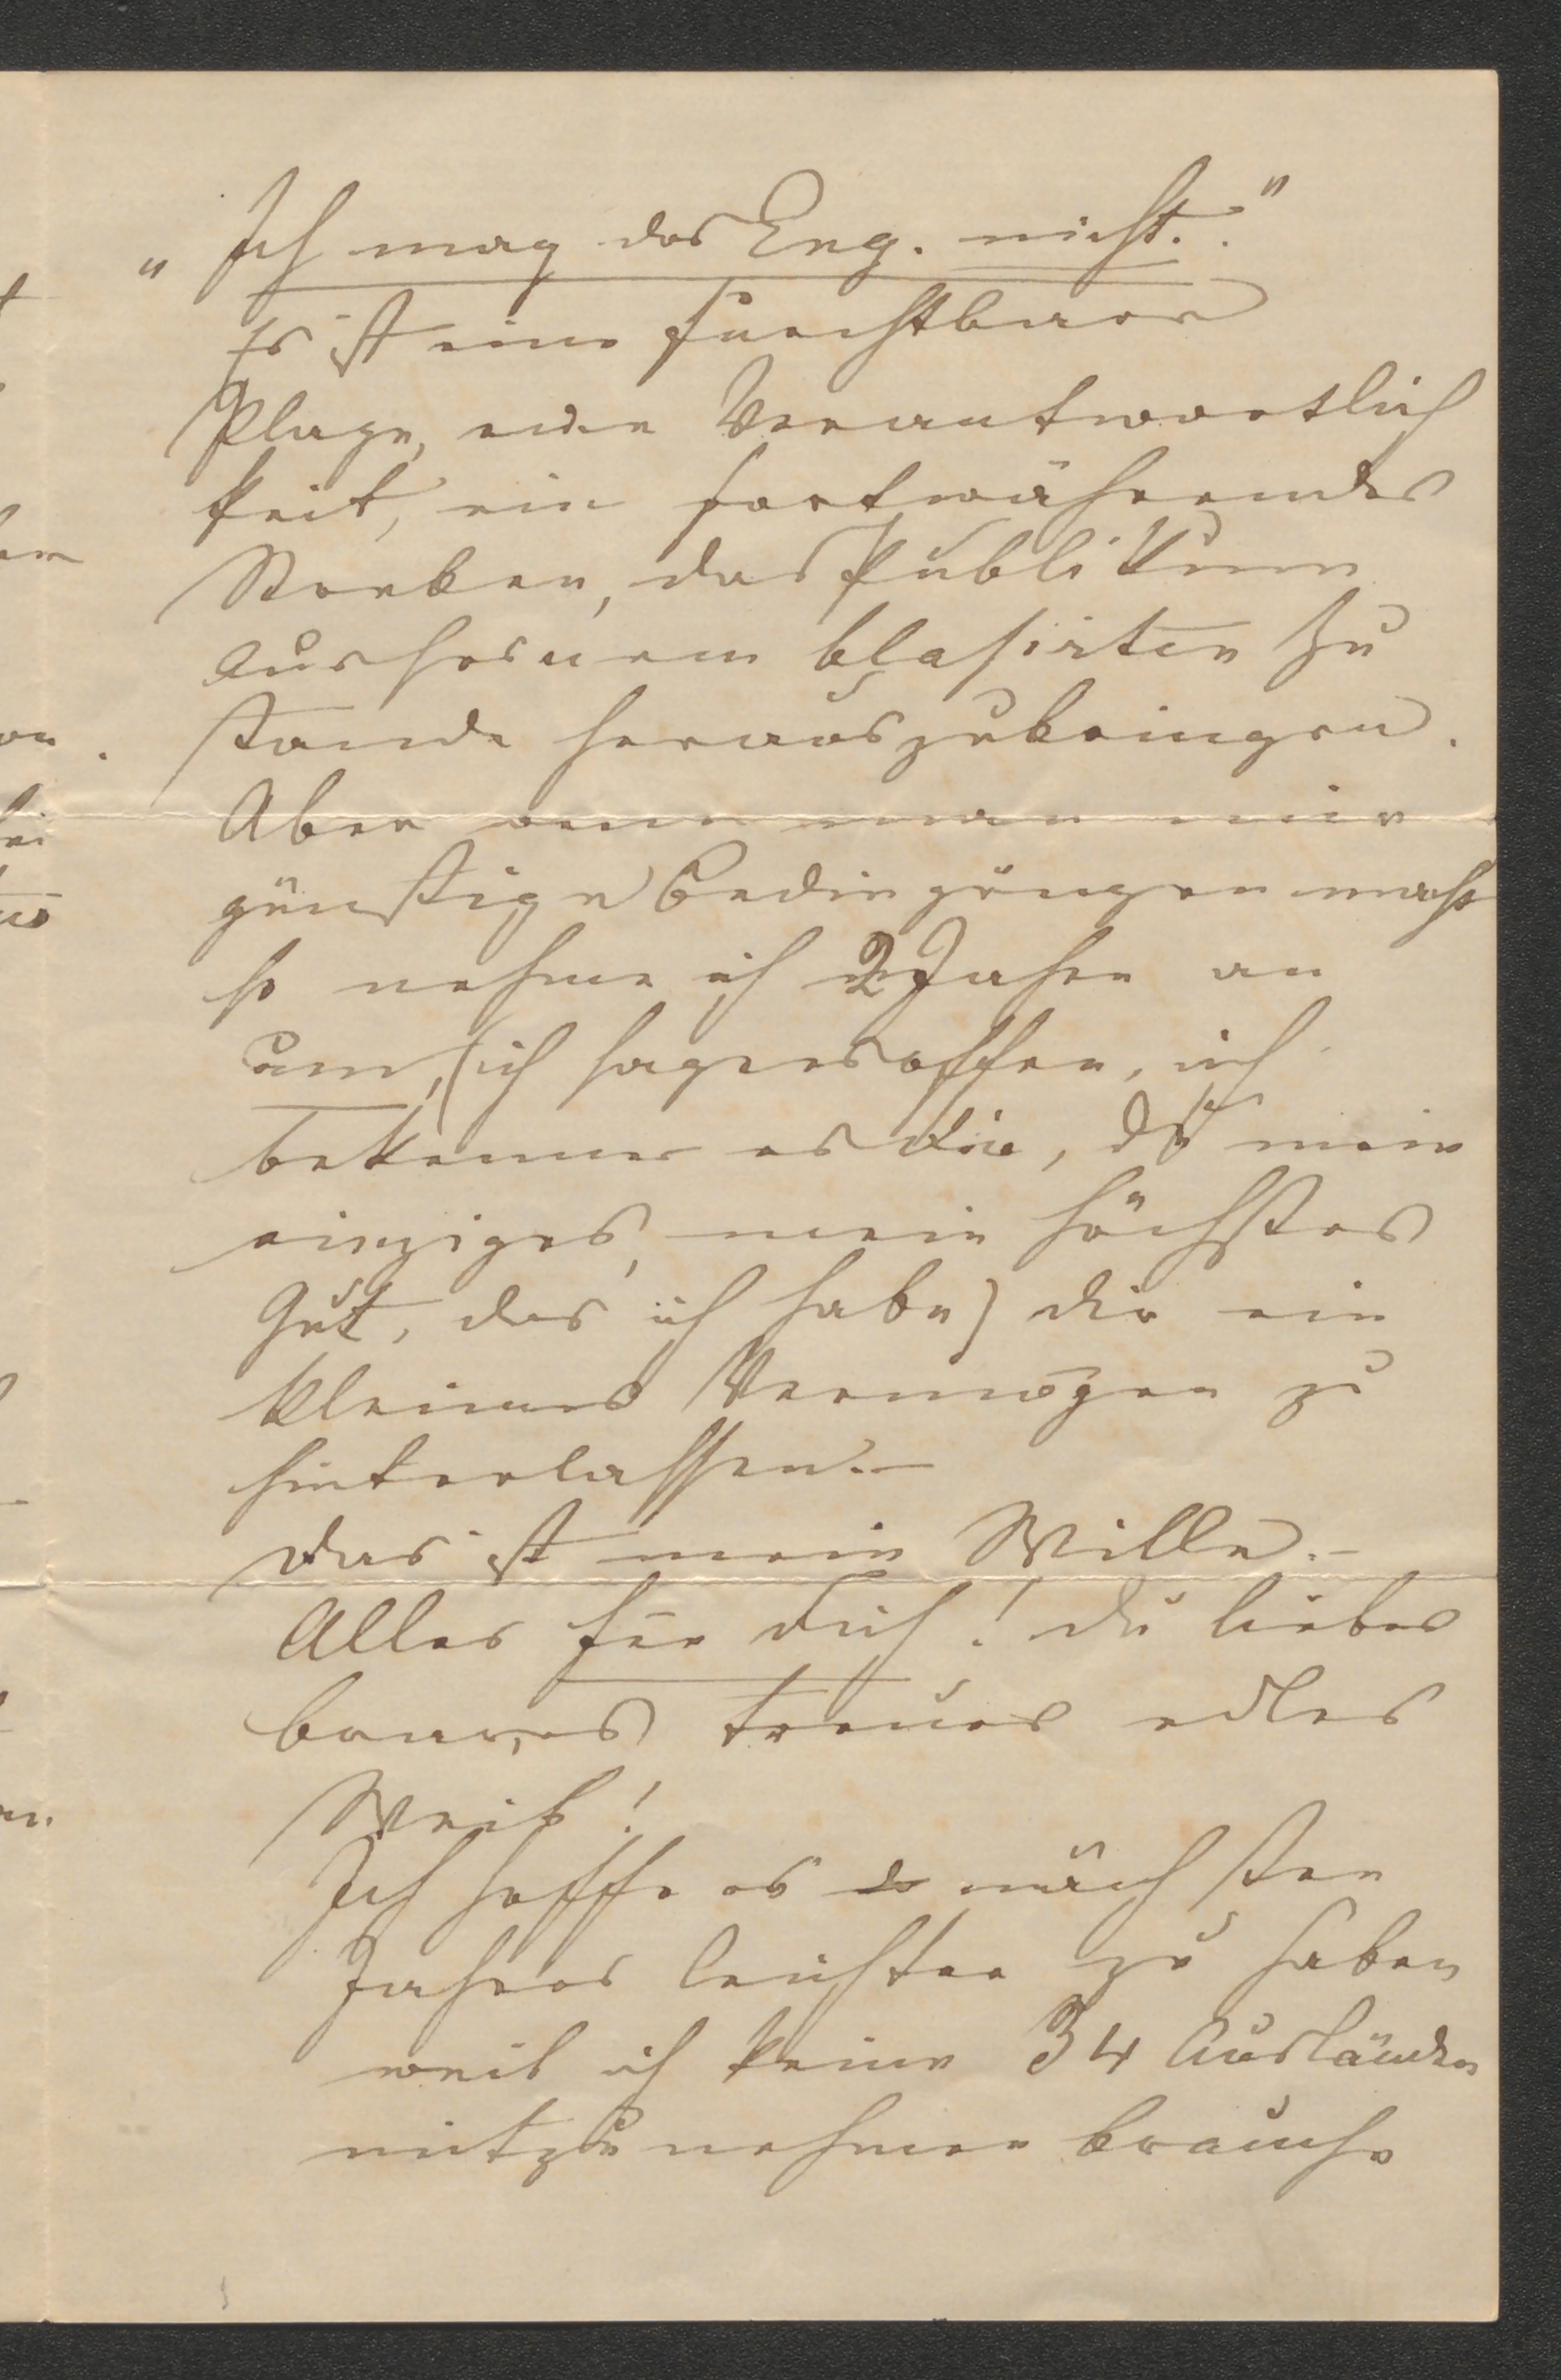 „Ich mag das Eng. nicht."
Es ist eine furchtbare
Plage, eine Verantwortlich
keit, ein fortwährendes
Streben, das Publikum
aus seinem blasirten Zu
stande herauszubringen.
Aber wenn man mir
günstige Bedingungen macht
so nehme ich 2 Jahre an
um, (ich sage es offen, ich
bekenne es dir, daß mein
einziges, mein höchstes
Gut, das ich habe) dir ein
kleines Vermögen zu
hinterlassen.—
Das ist mein Wille.—
Alles für dich! du liebes
braves treues edles
Weib!
Ich hoffe es nächsten
Jahres leichter zu haben
weil ich keine 34 Ausländer
mitzunehmen brauche